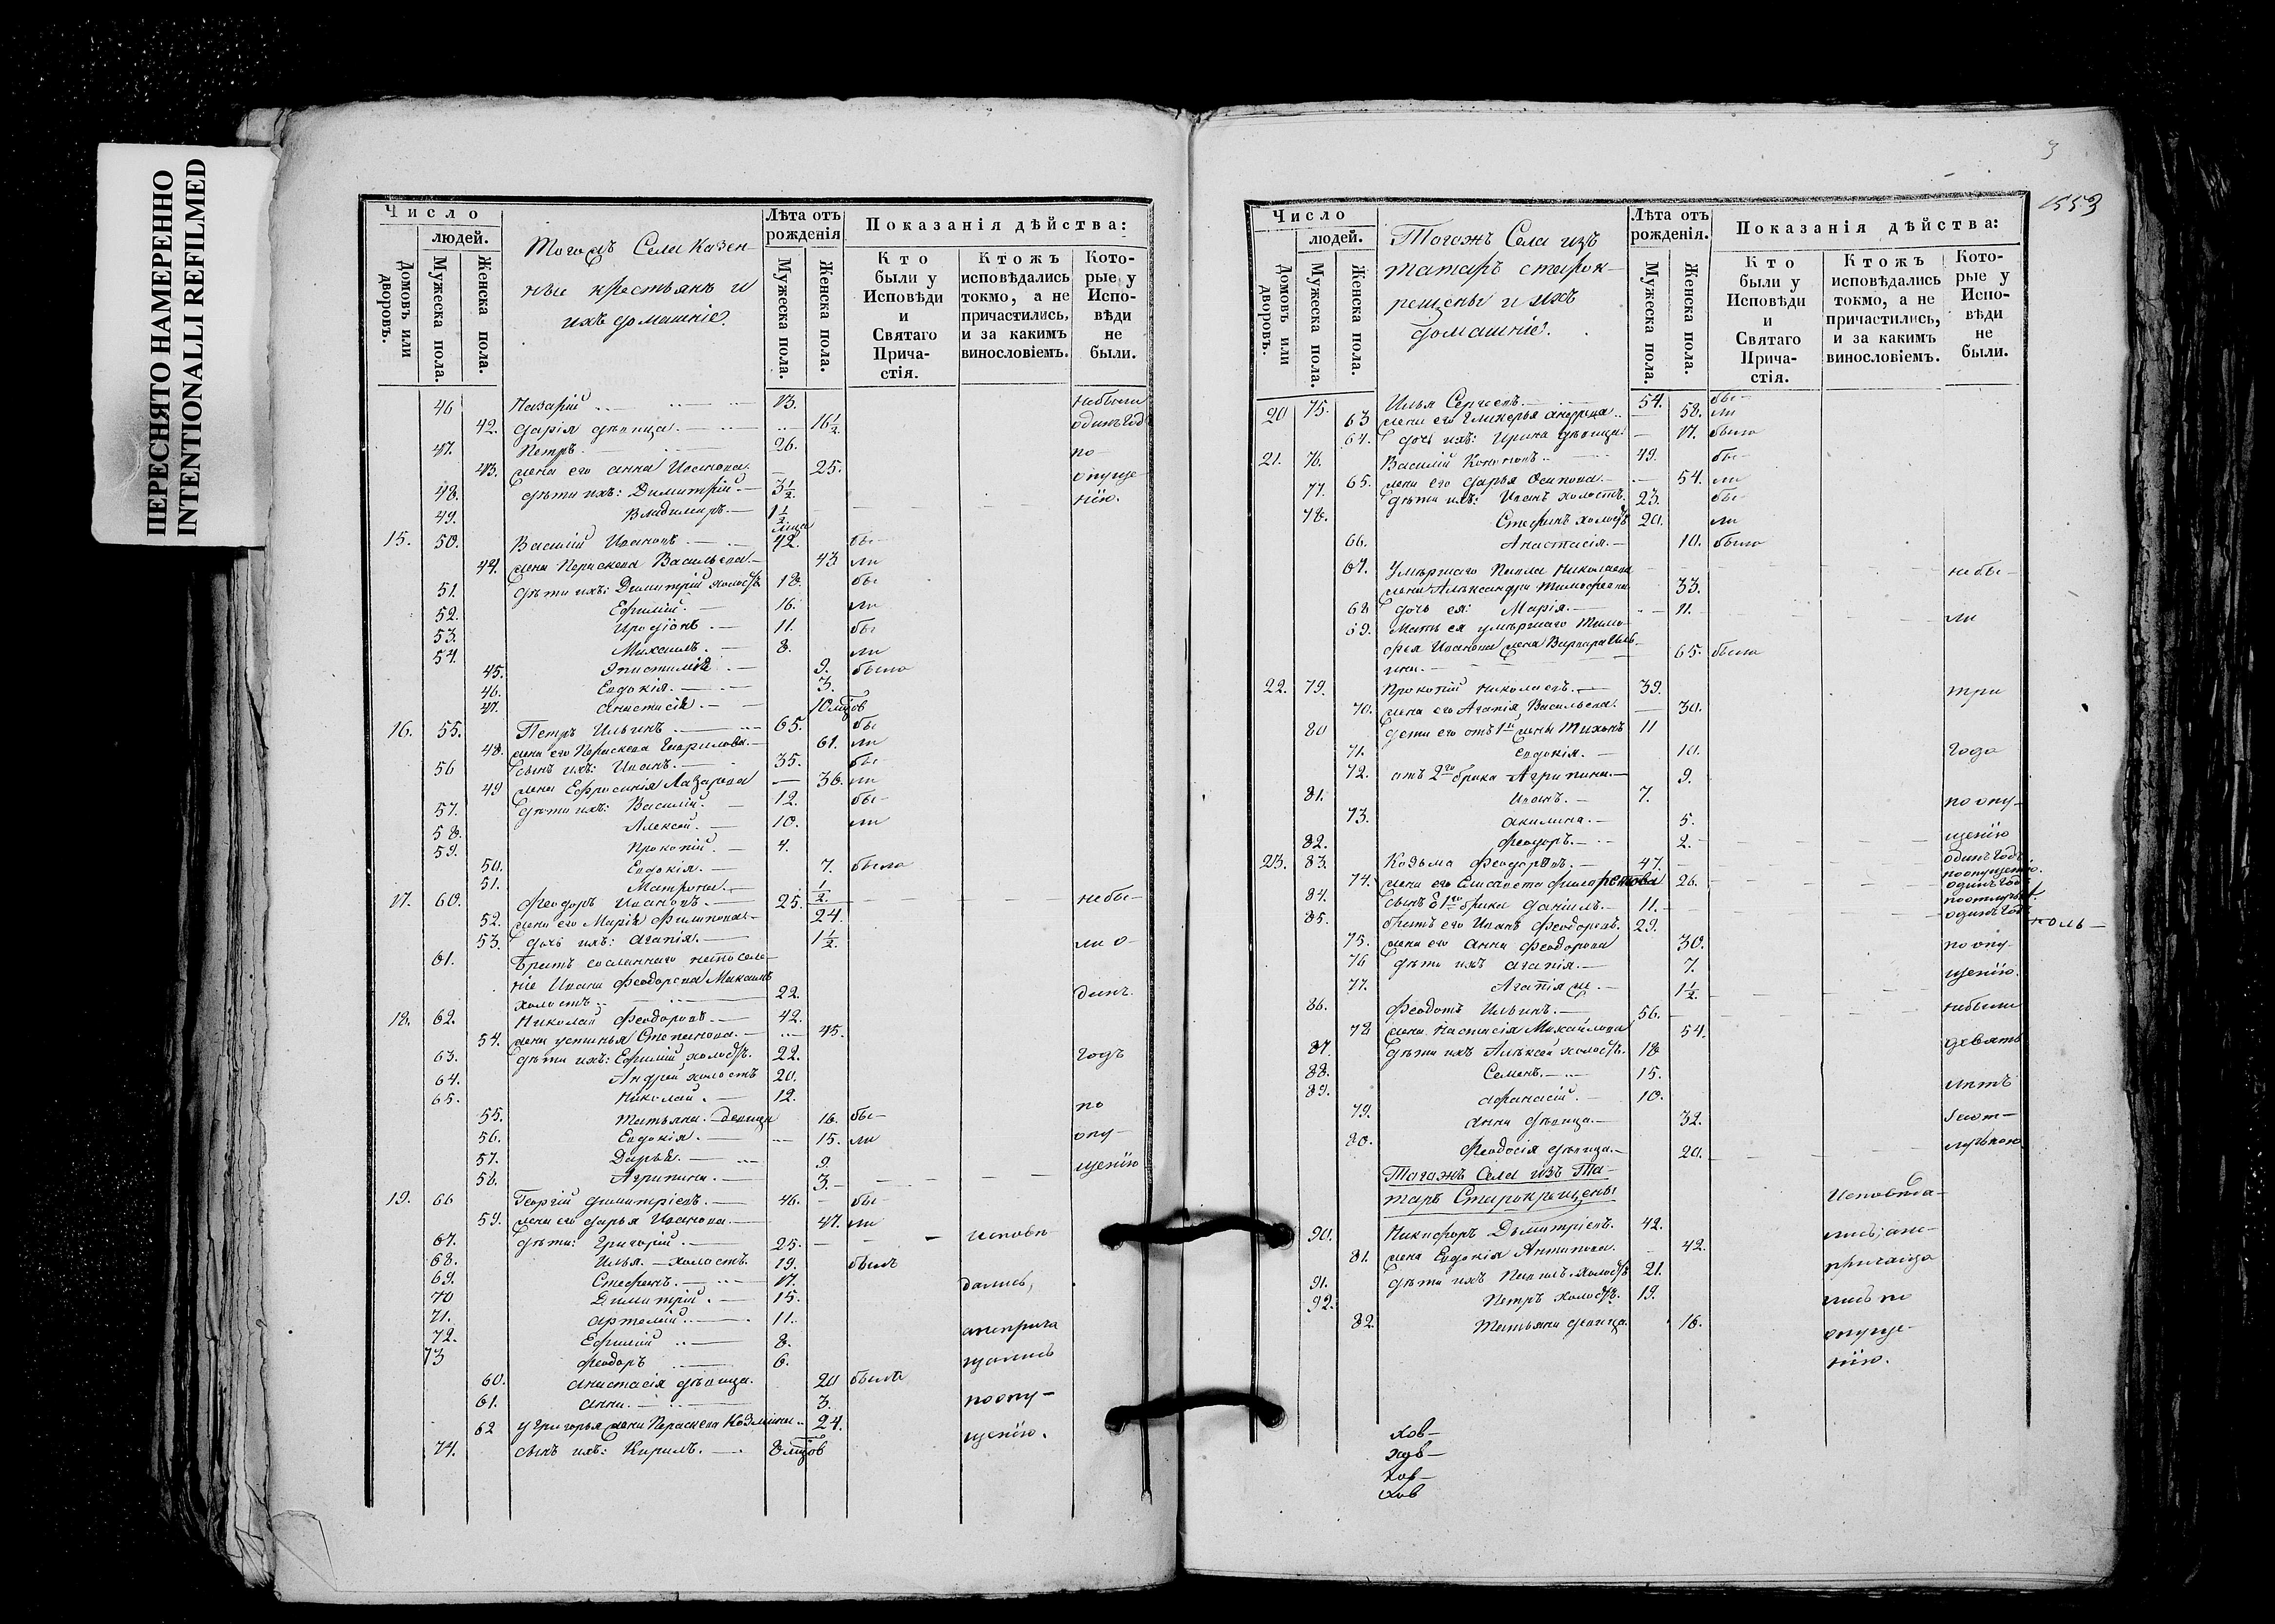 ПЕРЕСНЯТО НАМЕРЕННО
INTENTIONALLI REFILMED
Число
людей.
Домовъ или дворовъ.
Мужеска пола.
Женска пола.
Тогожъ Села Казен
ные крестьяне и
ихъ домашніе.
Лѣта отъ рожденія
Мужеска пола.
Женска пола.
Показанія дѣйства:
Кто были у Исповѣди и Святаго Прича-стія.
Ктожъ исповѣдались токмо, а не причастились, и за какимъ винословіемъ.
Кото-рые у Испо-вѣди не были.
46 Назарій 13. небыли
42. Дарія дѣвица. 16½ одинъ годъ
47. Петръ. 26. по
43. жена его Анна Иванова. 25. опуще
48. дѣти ихъ: Димитрій. 3½ нію.
49. Владимиръ. 1½
15. 50. Василій Ивановъ 42. бы
44. жена Параскева Васильева. 43 ли
51. дѣти ихъ: Димитрій холостъ 18. бы
52. Ефимій. 16. ли
53. Иродіонъ. 11. бы
54. Михаилъ. 8. ли
45. Эпистимія 9. была
46. Евдокія. 3.
47. Анастасія. 10 мцов
16. 55. Петръ Ильинъ 65. бы
48. жена его Параскева Гаврилова. 61. ли
56 сынъ ихъ: Иванъ. 35. бы
49 жена Ефросинія Лазарева 36. ли
57. дѣти ихъ: Василій. 12. бы
58. Алексей. 10. ли
59. Прокопій. 4.
50. Евдокія. 7. была
51. Матрона. ½.
17. 60. Феодоръ Ивановъ. 25. небы
52. жена его Марія Филипова. 24.
53. дочь ихъ: Агапія. 1½. ли о
61. Братъ сосланнаго напоселе
ніе Ивана Феодорова Михаилъ
холостъ 22. динъ
18. 62. Николай Феодоровъ. 42.
54. жена Устинья Степанова. 45.
63. дѣти ихъ: Ефимій холостъ. 22. годъ
64. Андрей холостъ 20.
65. Николай. 12. по
55. Татьяна девица 16. бы
56. Евдокія. 15. ли опу
57. Дарья. 9.
58. Агрипина. 3. щенію
19. 66 Георгій Димитріевъ. 46. бы
59. жена его Дарья Иванова. 47. ли
67. дѣти: Григорій. 25. исповѣ
68. Илья. холостъ. 19. былъ
69. Стефанъ. 17. дались,
70 Димитрій. 15.
71. Артемій 11. анеприча
72. Ефимій 8.
73 Феодоръ 6. щались
60. Анастасія дѣвица. 20 была
61. Анна. 3. поопу
62 у Григорья жена Параскева Козмина 24.
74. сынъ ихъ: Кирилъ. 8 мцов щенію.
3
1553
Число
людей.
Домовъ или дворовъ.
Мужеска пола.
Женска пола.
Тогожъ Села изъ
татаръ старок
рещены и ихъ
домашніе.
Лѣта отъ рожденія.
Мужеска пола.
Женска пола.
Показанія дѣйства:
Кто были у Исповѣди и Святаго Прича-стія.
Ктожъ исповѣдались токмо, а не причастились, и за какимъ винословіемъ.
Кото-рые у Испо-вѣди не были.
20 75. Илья Сергеевъ. 54. бы
63 жена его Гликерья 58. ли
64. дочь ихъ: Ирина дѣвица 17. была
21. 76. Василій Кононовъ 49. бы
65. жена его Дарья Осипова. 54. ли
77. дѣти ихъ: Иванъ холостъ. 23. бы
78. Стефанъ холостъ 20. ли
66. Анастасія. 10. была
67. Умершаго Павла Николаева небы
жена Александра Тимофеева 33.
68 дочь ея: Марія. 11. ли
69. Мать ея умершаго Тимо
фея Иванова жена Варвара Иль
ина. 65. была
22. 79. Прокопій Николаевъ. 39. три
70. жена его Агапія Васильева. 30.
80 Дети его отъ 1й жены Тихонъ 11
71. Евдокія. 10. года
72. отъ 2го брака Агрипина. 9.
81. Иванъ. 7. поопу
73. Акилина. 5.
82. Феодоръ. 2. щенію
23. 83. Козьма Феодоровъ. 47. одинъ годъ
поопущенію.
74. жена его Елисавета Филаретова 26. одинъ годъ
84. сынъ 1го брака Даніилъ. 11.
85. братъ его Иванъ Феодоровъ. 29. одинъ годъ
75. жена его Анна Феодорова 30. поопу
76 дѣти ихъ Агапія. 7. щенію.
77. Агапія 1½.
86. Феодотъ Ильинъ. 56. небыли
78 жена Настасія Михайлова 54.
87. дѣти ихъ Алексей холостъ. 18 девять
88. Семенъ. 15.
89. Афанасій. 10. лѣтъ
79. Анна дѣвица. 32.
80. Феодосія дѣвица. 20.
Тогожъ Села изъ Та
таръ Старокрещены
90. Никифоръ Димитріевъ. 42. Исповѣда
81. жена Евдокія Антипова. 42. лись; ане
91. дѣти ихъ Павелъ холостъ 21. причаща
92. Петръ холостъ. 19. лись по
82. Татьяна дѣвица. 16. опуще
нію.